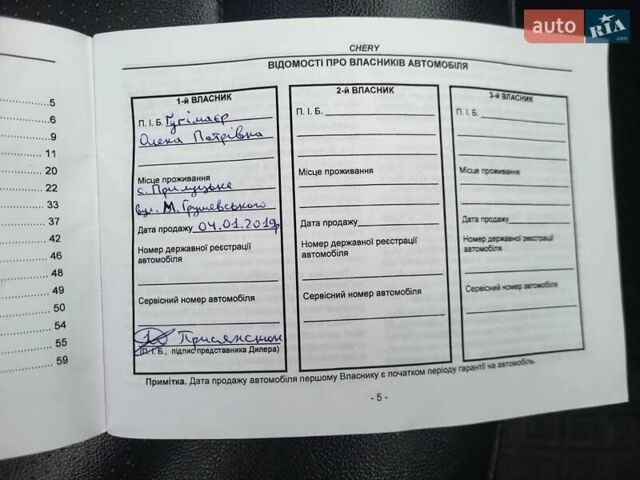 auto RIA.com
CHERY
ВІДОМОСТІ ПРО ВЛАСНИКІВ АВТОМОБІЛЯ
1-й ВЛАСНИК
П. І. Б. Гугімаєр
Олена Патрівна
Місце проживання
с. Прилуцьке
вул. М. Грушевського
Дата продажу 04.01.2019р
Номер державної реєстрації
автомобіля
Сервісний номер автомобіля
(П. І. Б., підпис представника Дилера)
2-й ВЛАСНИК
П. І. Б.
Місце проживання
Дата продажу
Номер державної реєстрації
автомобіля
Сервісний номер автомобіля
3-й ВЛАСНИК
П. І. Б.
Місце проживання
Дата продажу
Номер державної реєстрації
автомобіля
Сервісний номер автомобіля
Примітка. Дата продажу автомобіля першому Власнику є початком періоду гарантії на автомобіль.
- 5 -
5
6
9
11
20
22
33
37
42
46
48
49
50
54
55
59